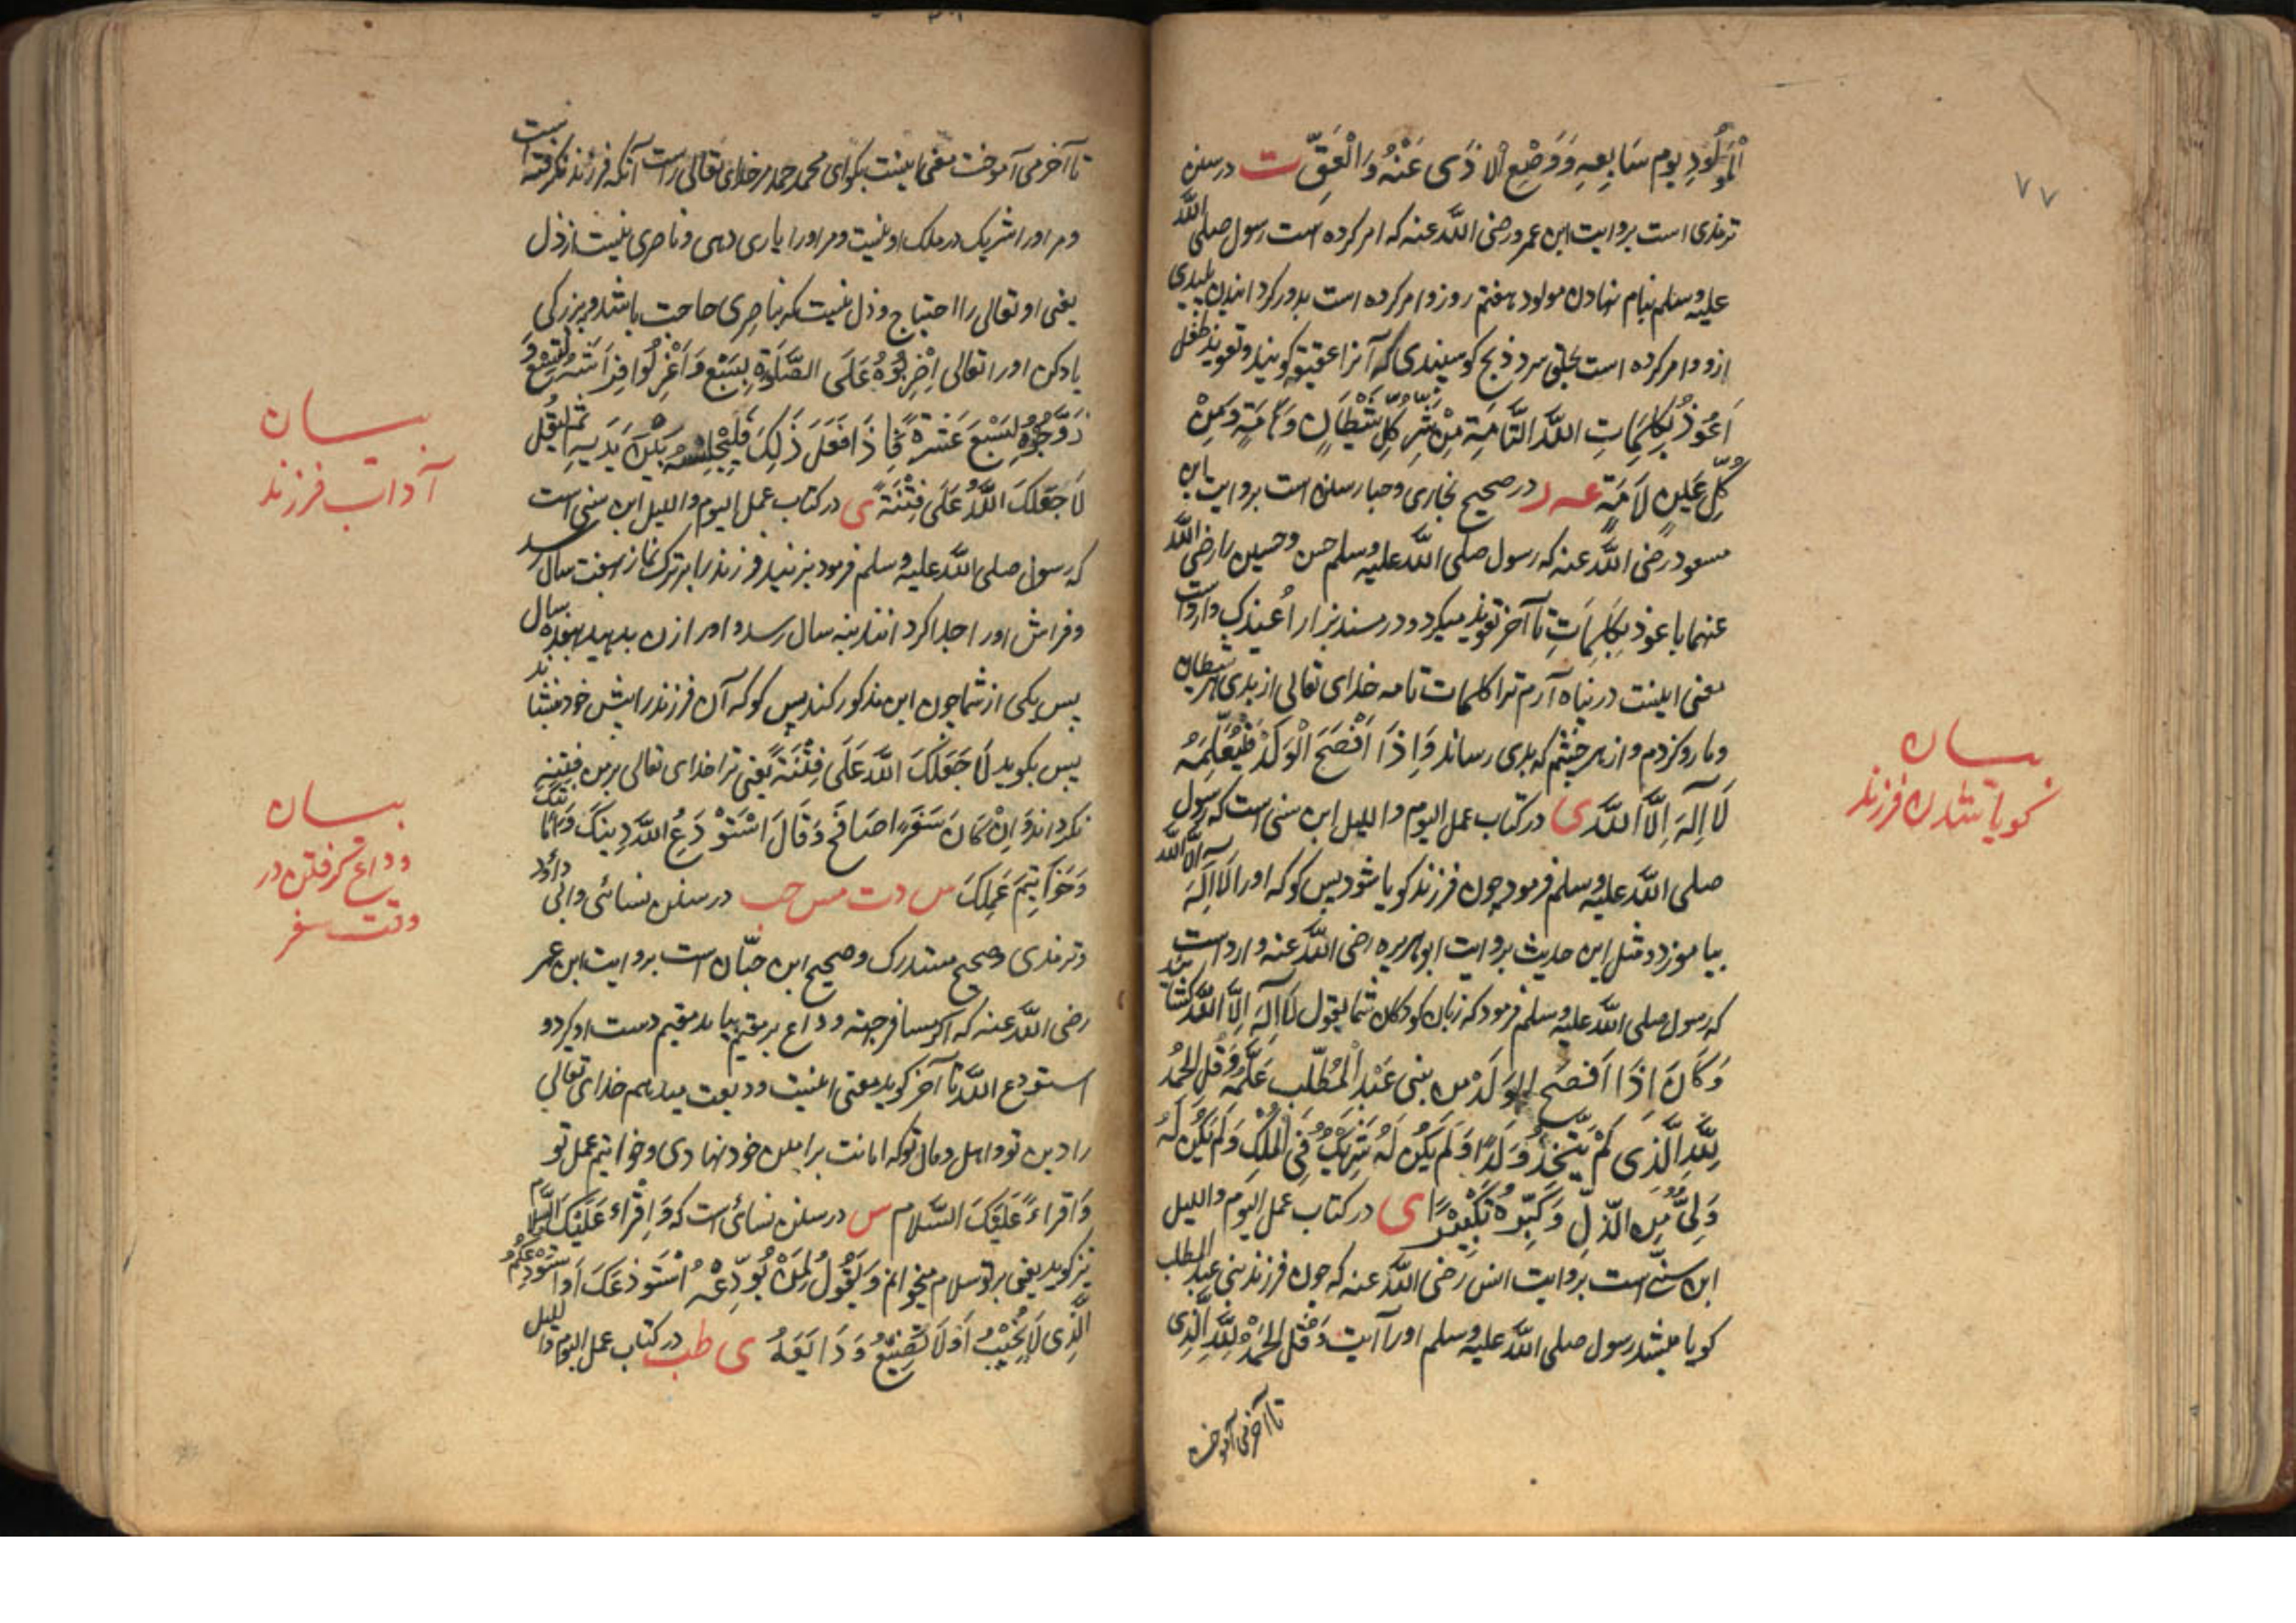 ۷۷
الْمَوْلُودِ یوم سَابِعِهِ وَوَضْعِ الْاَذَی عَنْهُ وَالْعَقِّ ت در سنن
ترمذی است بروایت ابن عمرو رضی اللّه عنه که امر کرده است رسول صلی اللّه
علیه وسلم بنام نهادن مولود هفتم روز و امر کرده است بدور کردانیدن پلیدی
ازو و امر کرده است بحلق سر و ذبح کوسپندی که آنرا عقیقه کویند و تعویذ طفل
اَعُوذُ بِکَلِمَاتِ اللّهِ التَّامَّةِ مِنْ شَرِّ کُلِّ شَیْطَانٍ وَهَامَّةٍ وَمِنْ
کُلِّ عَیْنٍ لَامَّةٍ در صحیح بخاری و چهار سنن است بروایت ابن
مسعود رضی اللّه عنه که رسول صلی اللّه علیه وسلم حسن و حسین را رضی اللّه
عنهما باعوذ بِکَلِمَاتِ تا آخر تعویذ میکرد و در مسند بزار اُعیذک وارد است
معنی اینست در پناه آرم ترا کلمات تامه خدای تعالی از بدی هر شیطان
و مار و کژدم و از هر چشم که بدی رساند وَاِذَا اَفْصَحَ الْوَلَدُ فَلْیُعَلِّمْهُ
لَا اِلٰهَ اِلَّا اللّهُ ی در کتاب عمل الیوم و اللیل ابن سنی است که رسول
صلی اللّه علیه وسلم فرمود چون فرزند کویا شود پس کو که اورا لَا اِلٰهَ الّا اللّه
بیاموزد و مثل این حدیث بروایت ابوهریره رضی اللّه عنه وارد است
که رسول صلی اللّه علیه وسلم فرمود که زبان کودکان شما بقول لَا اِلٰهَ اِلَّا اللّه کشایند
وَکَانَ اِذَا اَفْصَحَ الوَلَدُ مِن بنی عَبْدِ الْمُطَّلِب عَلَّمَهُ وَقُلِ الحَمْدُ
لِلّهِ الَّذِی لَمْ یَتَّخِذْ وَلَدًا وَلَمْ یَکُن لَهُ شَرِیکٌ فِی الْمُلْکِ وَلَمْ یَکُن لَهُ
وَلِیٌّ مِنَ الذُّلِّ وَکَبِّرْهُ تَکْبِیْرًا ی در کتاب عمل الیوم و اللیل
ابن سنّی است بروایت انس رضی اللّه عنه که چون فرزند بنی عبد المطلب
کویا میشد رسول صلی اللّه علیه وسلم اورا آیت وَقُل الحَمْدُ لِلّهِ الَّذِی
تا آخر می آموخت
بیان
کویا شدن فرزند
تا آخر می آموخت معنی اینست بکو ای محمد حمد مر خدای تعالی راست آنکه فرزند نکرفته است
و مر اورا شریک در ملک او نیست و مر اورا یاری دهی و ناصری نیست از ذل
یعنی او تعالی را احتیاج و ذل نیست که بناصری حاجت باشد و ببزرکی
یاد کن اورا تعالی اِضْرِبُوْهُ عَلَی الصَّلٰوةِ لِسَبْعٍ وَاعْزِلُوا فِرَاشَهُ لِتِسْعٍ وَ
زَوِّجُوْهُ لِسَبْعَ عَشْرَةَ فَاِذَا فَعَلَ ذَلِکَ فَلْیُجْلِسْهُ بَیْنَ یَدَیْهِ ثُمَّ لْیَقُلْ
لَا جَعَلَکَ اللّهُ عَلَیَّ فِتْنَةً ی در کتاب عمل الیوم و اللیل ابن سنی است
که رسول صلی اللّه علیه وسلم فرمود بزنید فرزند را بر ترک نماز هفت سال رسد
و فراش اورا جدا کردانند بنه سال رسد و اورا زن بدهید بهفده سال
پس یکی از شما چون این مذکور کند پس کو که آن فرزند را پیش خود بنشاند
پس بکوید لَا جَعَلَکَ اللّهُ عَلَیَّ فِتْنَةً یعنی ترا خدای تعالی بر من فتنه
نکرداند وَاِنْ کَانَ سَفَرًا صَافَحَ وَقَالَ اَسْتَوْدِعُ اللّهَ دِینَکَ وَاَمَانَتَکَ
وَخَوَاتِیْمَ عَمَلِکَ س د ت مس حب در سنن نسائی و ابی داؤد
و ترمذی و صحیح مستدرک و صحیح ابن حبّان است بروایت ابن عمر
رضی اللّه عنه که اکر مسافر جهته وداع بر مقیم بیاید مقیم دست او کیرد و
استودع اللّه تا آخر کوید معنی اینست ودیعت میدهم خدای تعالی
را دین تو و اهل و مال تو که امانت برابر من خود نهادی و خواتیم عمل تو
وَاَقْرَاءُ عَلَیْکَ السَّلَام س در سنن نسائی است که وَاَقْرَاءُ عَلَیْکَ السَّلَام
نیز کوید یعنی بر تو سلام میخوانم وَیَقُوْلُ لِمَنْ یُوَدِّعُهُ اَسْتَوْدِعُکَ اَو اَسْتَوْدِعُکُمُ اللّه
الَّذِی لَا یُخَیِّبُ اَوْ لَا تَضِیْعُ وَدَائِعَهُ ی طب در کتاب عمل الیوم و اللیل
بیان
آداب فرزند
بیان
وداع کرفتن در
وقت سفر